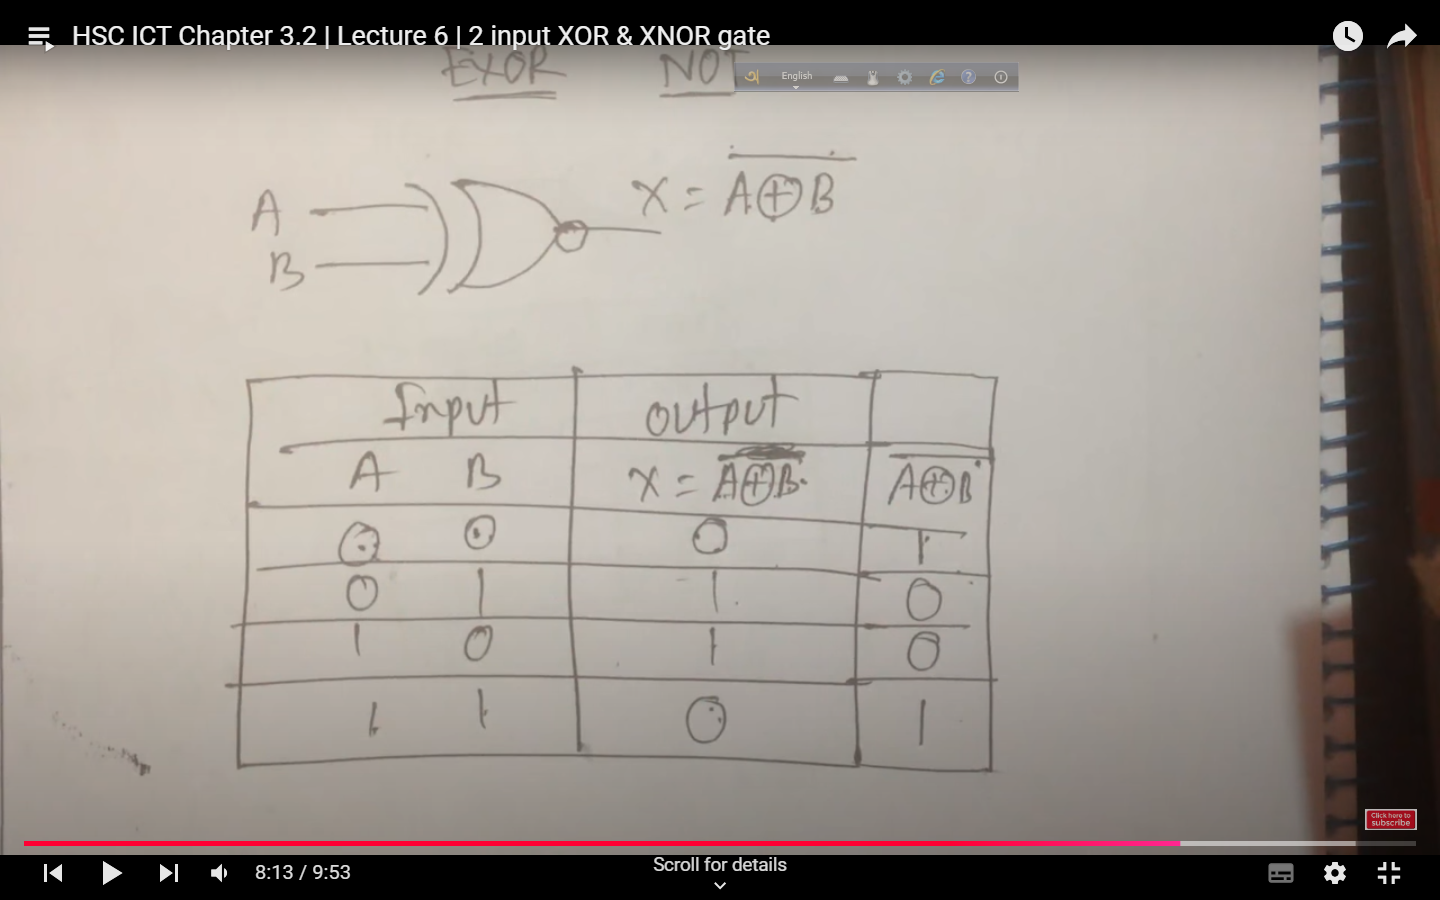 HSC ICT Chapter 3.2 | Lecture 6 | 2 input XOR & XNOR gate
EXOR NOT
অ English
A
B
X = A̅⊕̅B̅
Input Output
A B X = A⊕B A̅⊕̅B̅
0 0 0 1
0 1 1 0
1 0 1 0
1 1 0 1
Click here to
subscribe
8:13 / 9:53
Scroll for details